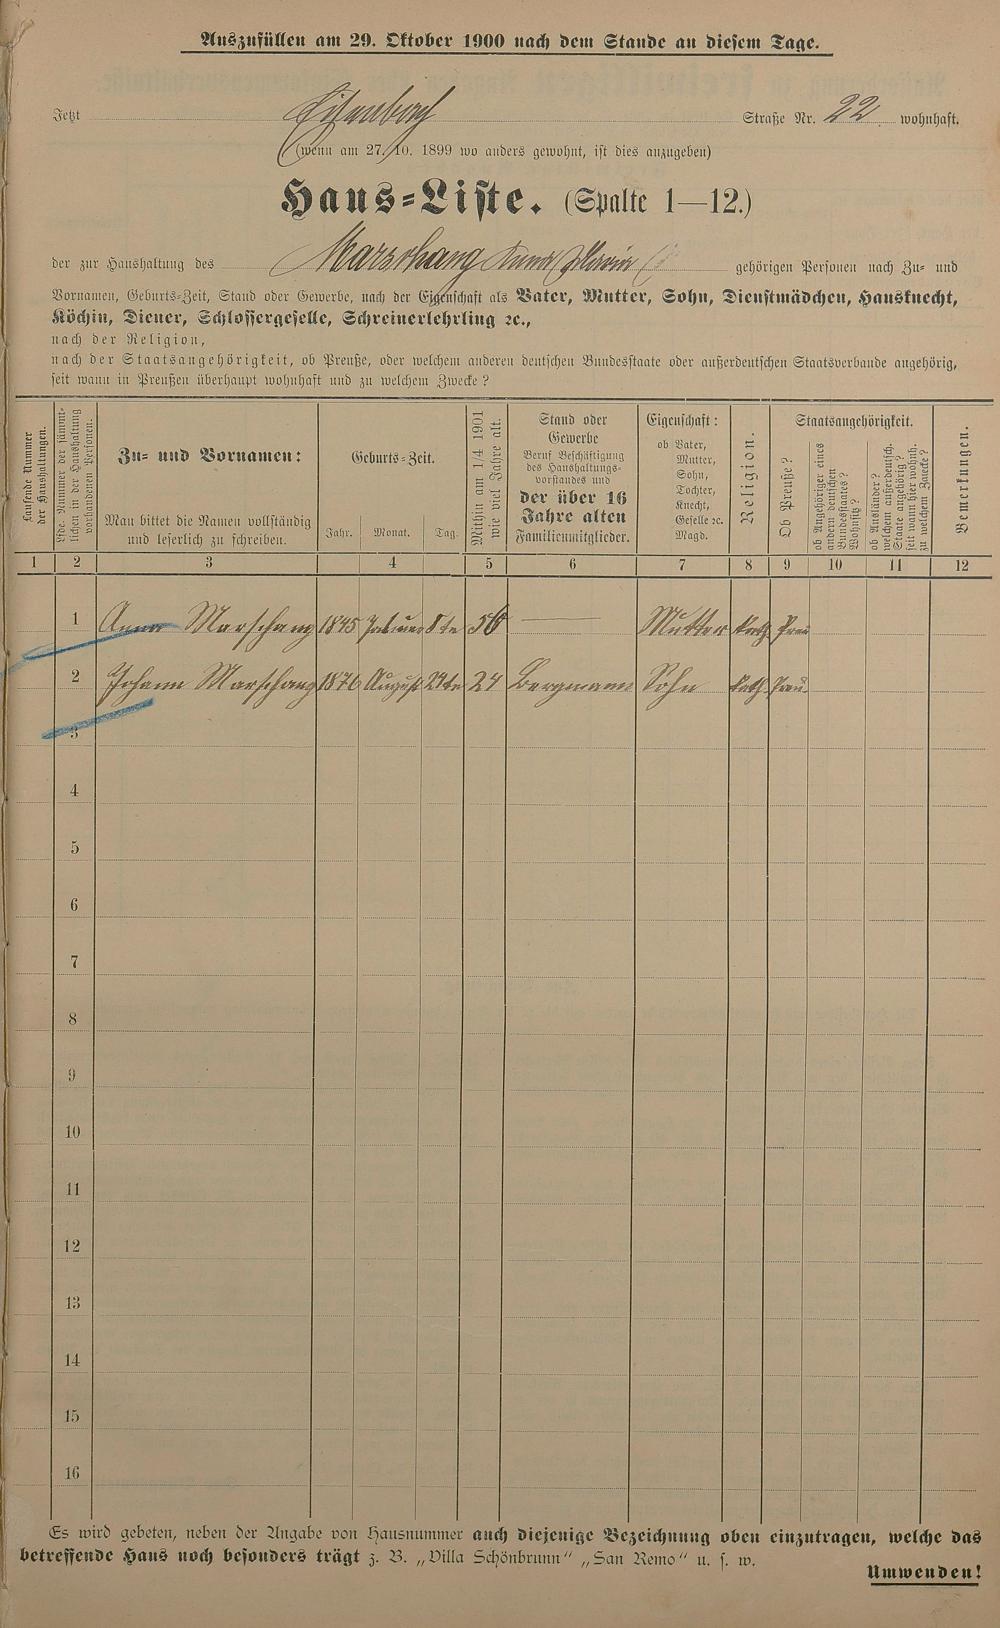 Auszufüllen am 29. Oktober 1900 nach dem Stande an diesem Tage.
Jetzt Straße Nr. 22 wohnhaft.
(wenn am 27. 10. 1899 wo anders gewohnt, ist dies anzugeben)
Haus-Liste. (Spalte 1—12.)
der zur Haushaltung des Marschang Anna Maria gehörigen Personen nach Zu- und
Vornamen, Geburts-Zeit, Stand oder Gewerbe, nach der Eigenschaft als Vater, Mutter, Sohn, Dienstmädchen, Hausknecht,
Köchin, Diener, Schlossergeselle, Schreinerlehrling ꝛc.,
nach der Religion,
nach der Staatsangehörigkeit, ob Preuße, oder welchem anderen deutschen Bundesstaate oder außerdeutschen Staatsverbande angehörig,
seit wann in Preußen überhaupt wohnhaft und zu welchem Zwecke?
Laufende Nummer
der Haushaltungen.
Lfde. Nummer der sämmt-
lichen in der Haushaltung
vorhandenen Personen.
Zu- und Vornamen:
Man bittet die Namen vollständig
und leserlich zu schreiben.
Geburts-Zeit.
Jahr. Monat. Tag.
Mithin am 1/4 1901
wie viel Jahre alt.
Stand oder
Gewerbe
Beruf Beschäftigung
des Haushaltungs-
vorstandes und
der über 16
Jahre alten
Familienmitglieder.
Eigenschaft:
ob Vater,
Mutter,
Sohn,
Tochter,
Knecht,
Geselle ꝛc.
Magd.
Religion.
Staatsangehörigkeit.
Ob Preuße?
ob Angehöriger eines
andern deutschen
Bundesstaates?
Wohnsitz?
ob Ausländer?
welchem außerdeutsch.
Staate angehörig?
seit wann hier wohnh.
zu welchem Zwecke?
Bemerkungen.
1 2 3 4 5 6 7 8 9 10 11 12
1 Anna Marschang 1845 Januar 8te 56 — Mutter kath. Preu
2 Johann Marschang 1876 August 29te 24 Bergmann Sohn kath. Preu.
3
4
5
6
7
8
9
10
11
12
13
14
15
16
Es wird gebeten, neben der Angabe von Hausnummer auch diejenige Bezeichnung oben einzutragen, welche das
betreffende Haus noch besonders trägt z. B. „Villa Schönbrunn“ „San Remo“ u. s. w.
Umwenden!